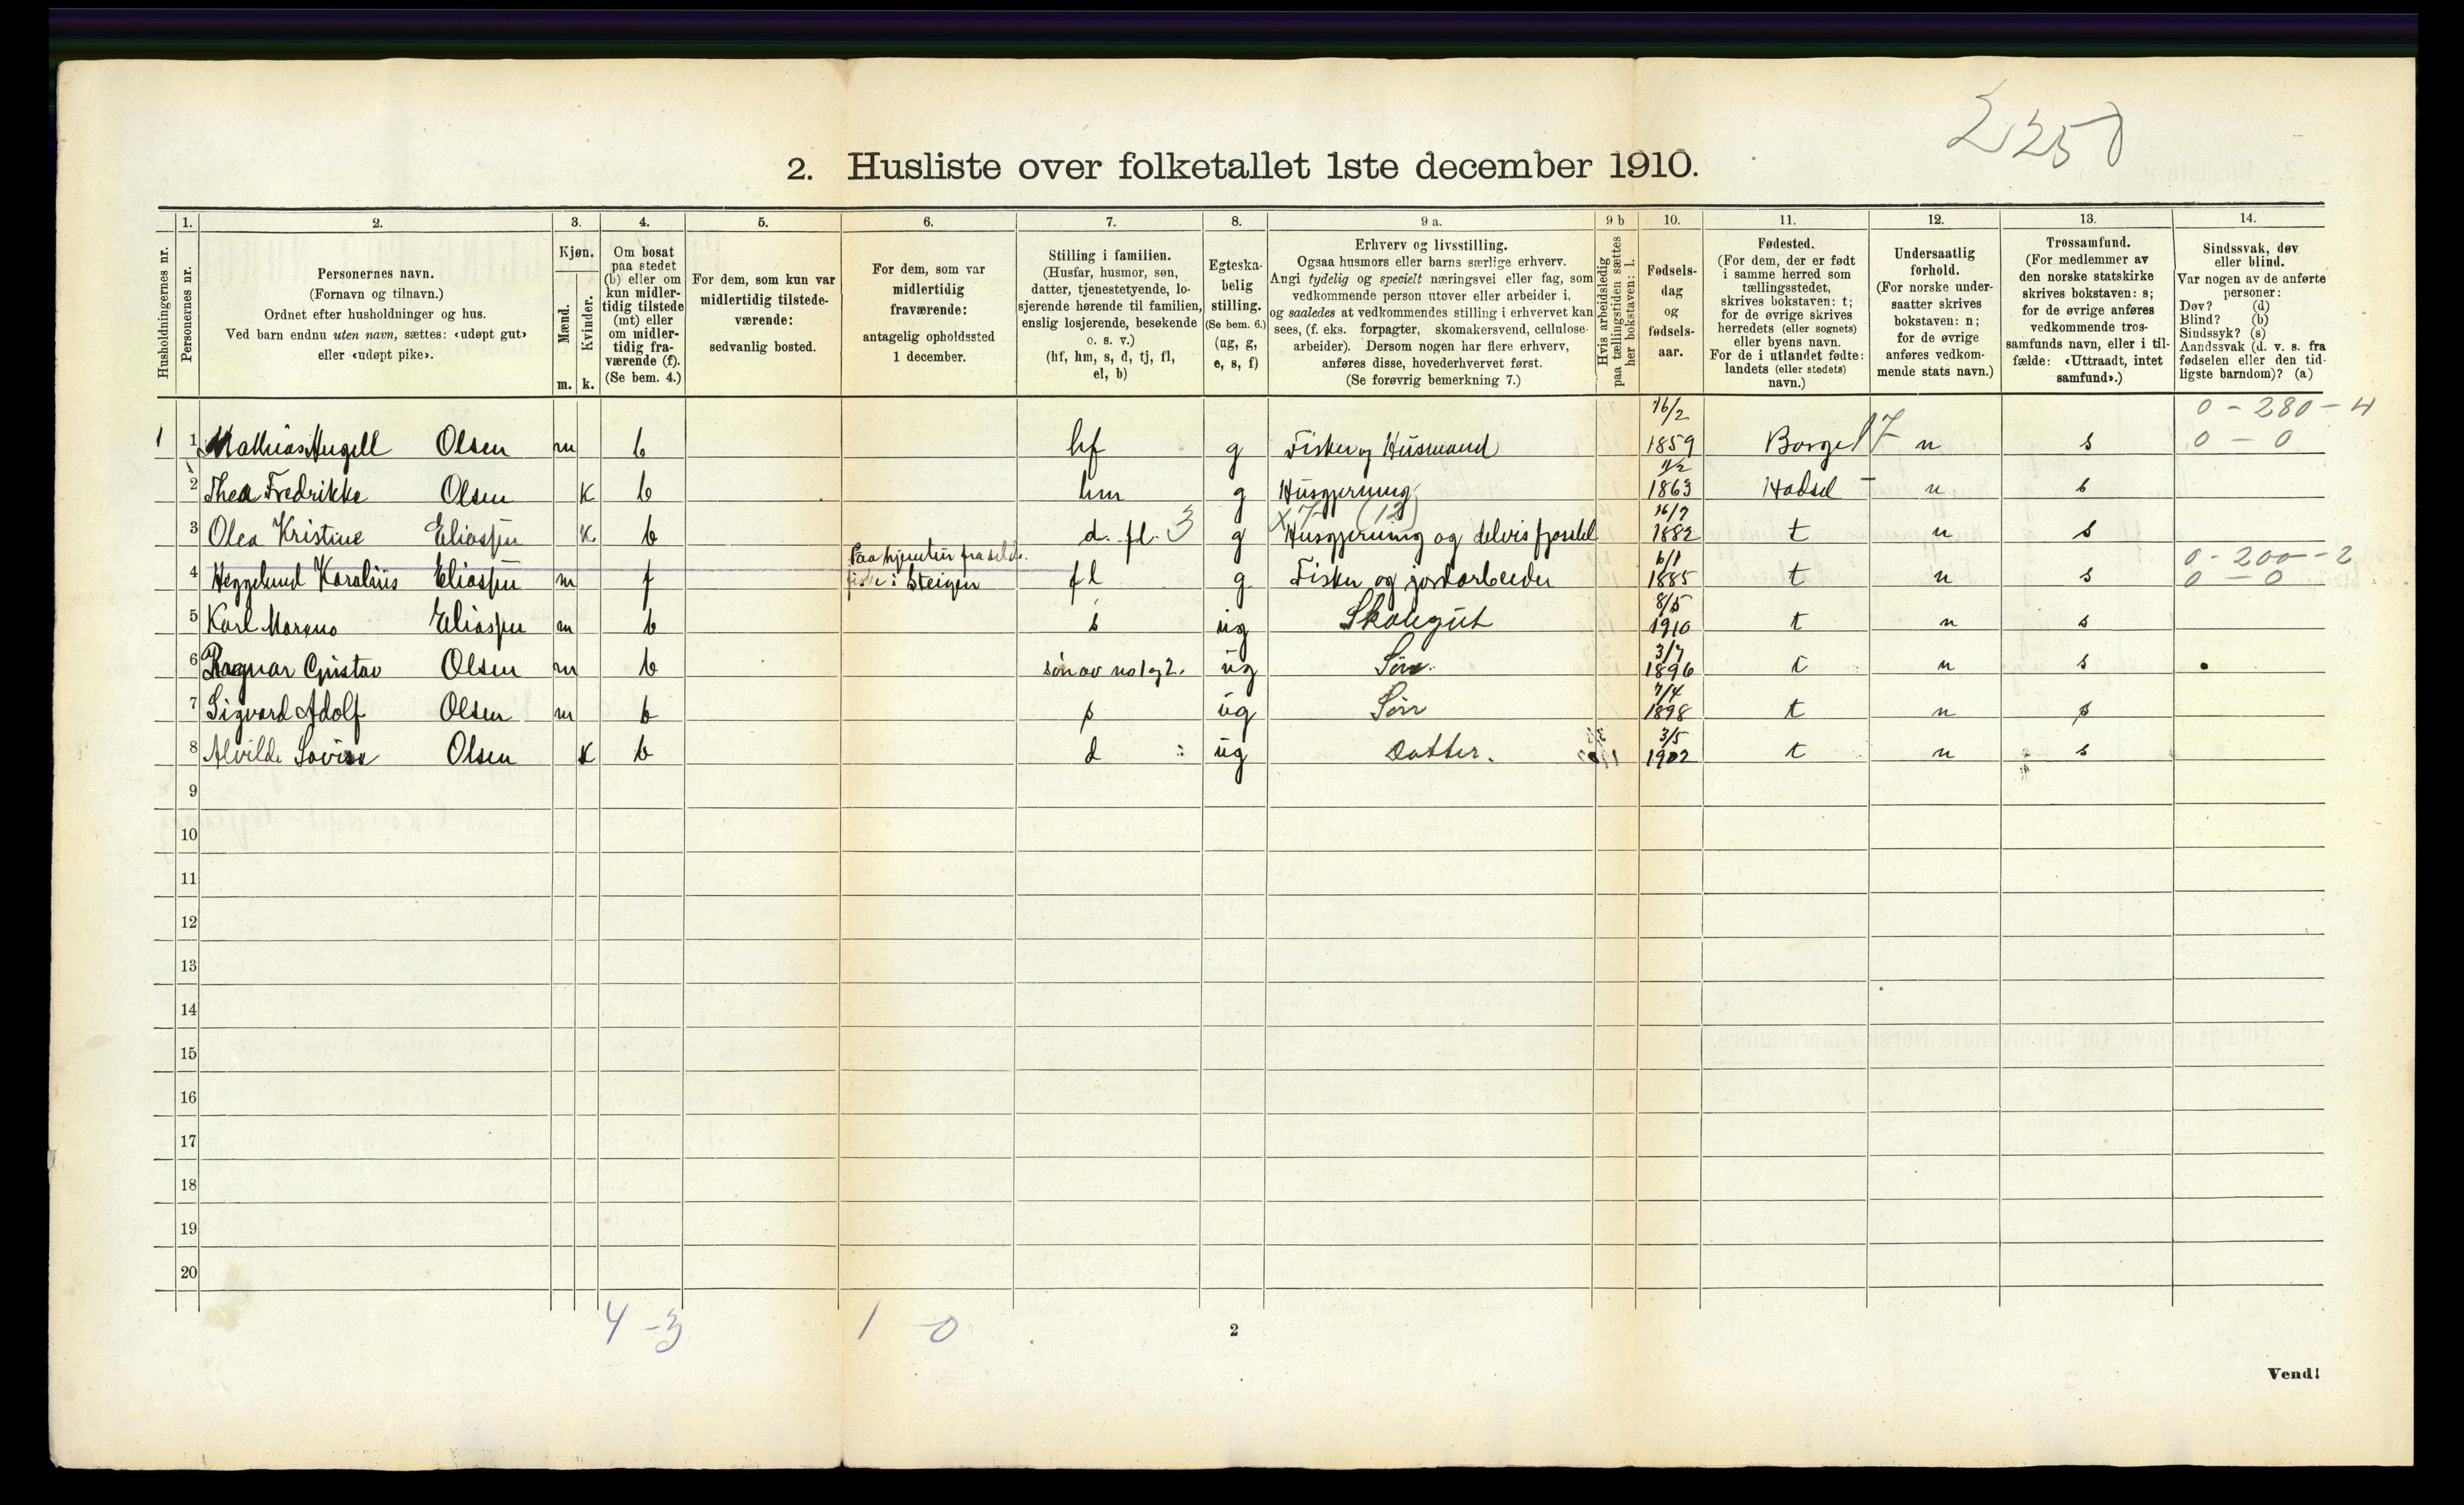 2250
2. Husliste over folketallet 1ste december 1910.
Husholdningernes nr.
1.
Personernes nr.
2.
Personernes navn.
(Fornavn og tilnavn.)
Ordnet efter husholdninger og hus.
Ved barn endnu uten navn, sættes: «udøpt gut»
eller «udøpt pike».
3.
Kjøn.
Mænd.
Kvinder.
m. k.
4.
Om bosat
paa stedet
(b) eller om
kun midler-
tidig tilstede
(mt) eller
om midler-
tidig fra-
værende (f).
(Se bem. 4.)
5.
For dem, som kun var
midlertidig tilstede-
værende:
sedvanlig bosted.
6.
For dem, som var
midlertidig
fraværende:
antagelig opholdssted
1 december.
7.
Stilling i familien.
(Husfar, husmor, søn,
datter, tjenestetyende, lo-
sjerende hørende til familien,
enslig losjerende, besøkende
o. s. v.)
(hf, hm, s, d, tj, fl,
el, b)
8.
Egteska-
belig
stilling.
(Se bem. 6.)
(ug, g,
e, s, f)
9 a.
Erhverv og livsstilling.
Ogsaa husmors eller barns særlige erhverv.
Angi tydelig og specielt næringsvei eller fag, som
vedkommende person utøver eller arbeider i,
og saaledes at vedkommendes stilling i erhvervet kan
sees, (f. eks. forpagter, skomakersvend, cellulose-
arbeider). Dersom nogen har flere erhverv,
anføres disse, hovederhvervet først.
(Se forøvrig bemerkning 7.)
9 b
Hvis arbeidsledig
paa tællingstiden sættes
her bokstaven: l.
10.
Fødsels-
dag
og
fødsels-
aar.
11.
Fødested.
(For dem, der er født
i samme herred som
tællingsstedet,
skrives bokstaven: t;
for de øvrige skrives
herredets (eller sognets)
eller byens navn.
For de i utlandet fødte:
landets (eller stedets)
navn.)
12.
Undersaatlig
forhold.
(For norske under-
saatter skrives
bokstaven: n;
for de øvrige
anføres vedkom-
mende stats navn.)
13.
Trossamfund.
(For medlemmer av
den norske statskirke
skrives bokstaven: s;
for de øvrige anføres
vedkommende tros-
samfunds navn, eller i til-
fælde: «Uttraadt, intet
samfund».)
14.
Sindssvak, døv
eller blind.
Var nogen av de anførte
personer:
Døv? (d)
Blind? (b)
Sindssyk? (s)
Aandssvak (d. v. s. fra
fødselen eller den tid-
ligste barndom)? (a)
16/2 0 - 280 - 4
1 1 Mathias Angell Olsen m b hf g Fisker og Husmand 1859 Borge 7 n s 0 - 0
2 Thea Fredrikke Olsen K b hm g Husgjerning 1863 Hadsel - n s
X 7 (12) 16/7
3 Olea Kristine Eliassen K b d. fl. 3 g Husgjerning og delvis fjøsstel 1882 t n s
Paa hjemtur fra silde- 6/1 0 - 200 - 2
4 Heggelund Karelius Eliassen m f fiske i Steigen fl g Fisker og jordarbeider 1885 t n s 0 - 0
8/5
5 Karl Magnus Eliassen m b s ug Skolegut 1910 t n s
3/7
6 Ragnar Gustav Olsen m b søn av no 1 og 2. ug Søn. 1896 t n s
7/4
7 Sigvard Adolf Olsen m b s ug Søn 1898 t n s
3/5
8 Alvilde Lovise Olsen K b d ug Datter. 1902 t n s
9
10
11
12
13
14
15
16
17
18
19
20
4 - 3 1 - 0
2
Vend!